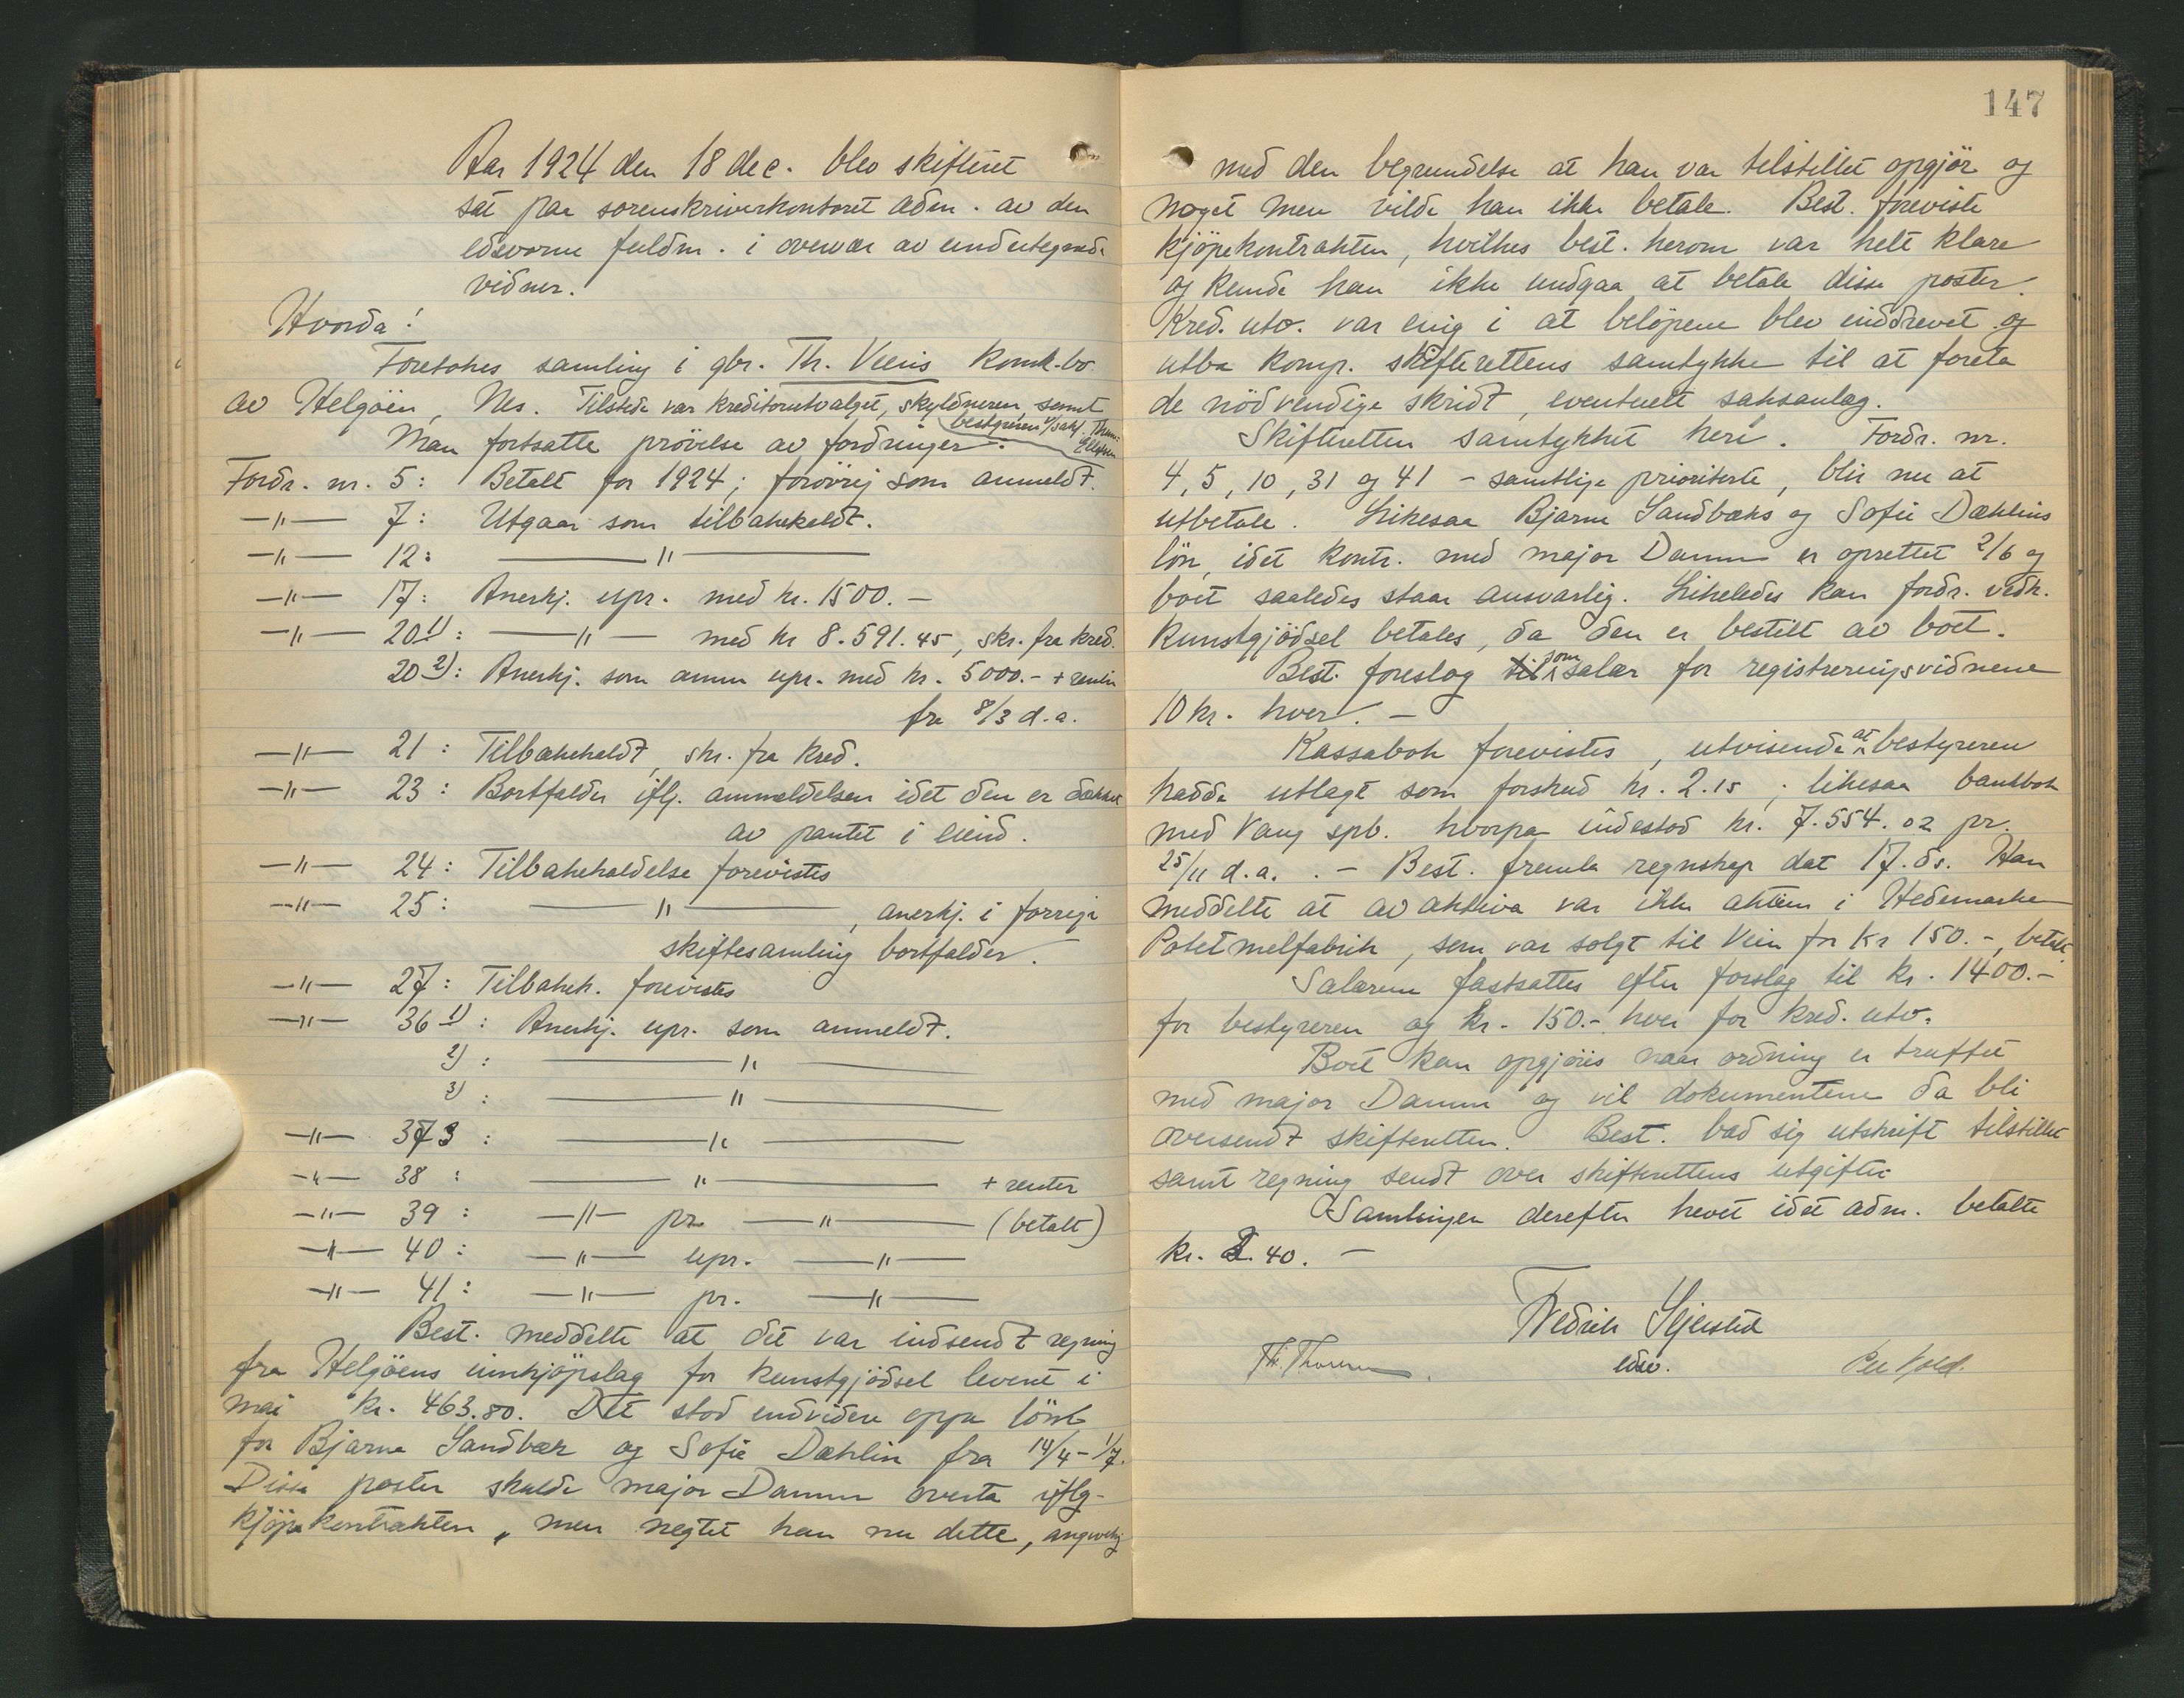 Aar 1924 den 18 dec. blev skifteret
sat paa sorenskriverkontoret adm. av den
edsvorne fuldm. i overvær av undertegnede
vidner.
Hvorda!
Foretokes samling i gbr. Th. Veens konk.bo
av Helgöen, Nes. Tilstede var kreditorutvalget, skyldneren, samt
bestyreren v/sakf.
Man fortsatte prövelse av fordringer:
Fordr. nr. 5: Betalt for 1924; forövrig som anmeldt.
—"— 7: Utgaar som tilbakekaldt.
—"— 12: ———"———
—"— 17: Anerkj. upr. med kr. 1500.—
—"— 20 1): ——"—— med kr 8.591.45, skr. fra kred.
20 2): Anerkj. som anm upr. med kr. 5000.- + renter
fra 8/3 d.a.
—"— 21: Tilbakekaldt, skr. fra kred.
—"— 23: Bortfalder iflg. anmeldelsen idet den er dækket
av pantet i eiend.
—"— 24: Tilbakekaldelse forevistes
—"— 25: ———"———, anerkj. i forrige
skiftesamling bortfalder.
—"— 27: Tilbakek. forevistes
—"— 36 1): Anerkj. upr. som anmeldt.
2): ———"———
3): ———"———
—"— 373: ———"———
—"— 38: ———"——— + renter
—"— 39: —"— pr. ——"—— (betalt)
—"— 40: —"— upr. ——"——
—"— 41: —"— pr. ——"——
Best. meddelte at det var indsendt regning
fra Helgöens innkjöpslag for kunstgjödsel levert i
mai kr. 463.80. Det stod endvidere oppe lönn
for Bjarne Sandbæk og Sofie Dæhlin fra 14/4 - 1/7.
Disse poster skulde major Damm overta iflg.
kjöpekontrakten, men negtet han nu dette, angivelig
147
med den begrundelse at han var tilstillet opgjör og
noget mer vilde han ikke betale. Best. foreviste
kjöpekontrakten, hvilkes best. herom var helt klare
og kunde han ikke undgaa at betale disse poster.
Kred. utv. var enig i at belöpene blev inddrevet og
utba komp. skifterettens samtykke til at foreta
de nödvendige skridt, eventuelt saksanlæg.
Skifteretten samtykket heri. Fordr. nr.
4, 5, 10, 31 og 41 - samtlige prioriterte, blir nu at
utbetale. Likesaa Bjarne Sandbæks og Sofie Dæhlins
lön, idet kontr. med major Damm er oprettet 2/6 og
boet saaledes staar ansvarlig. Likeledes kan fordr. vedk.
kunstgjödsel betales, da den er bestilt av boet.
Best. foreslog til som salær for registreringsvidnene
10 kr. hver. —
Kassabok forevistes, utvisende at bestyreren
hadde utlagt som forskud kr. 2.15; likesaa bankbok
med Vang spb. hvorpaa indestod kr. 7.554.02 pr.
25/11 d.a. .— Best. fremla regnskap dat 17. ds. Han
meddelte at av aktiva var ikke aktien i Hedemarken
Potetmelfabrik, som var solgt til Veen for kr 150.-, betalt.
Salærene fastsattes efter forslag til kr. 1400.-
for bestyreren og kr. 150.- hver for kred. utv.
Boet kan opgjöres naar ordning er truffet
med major Damm og vil dokumentene da bli
oversendt skifteretten. Best. bad sig utskrift tilstillet
samt regning sendt over skifterettens utgifter.
Samlingen derefter hevet idet adm. betalte
kr. 2.40. —
Fredrik Gjersted
edsv.
Th. Thoresen.
Per Kold.